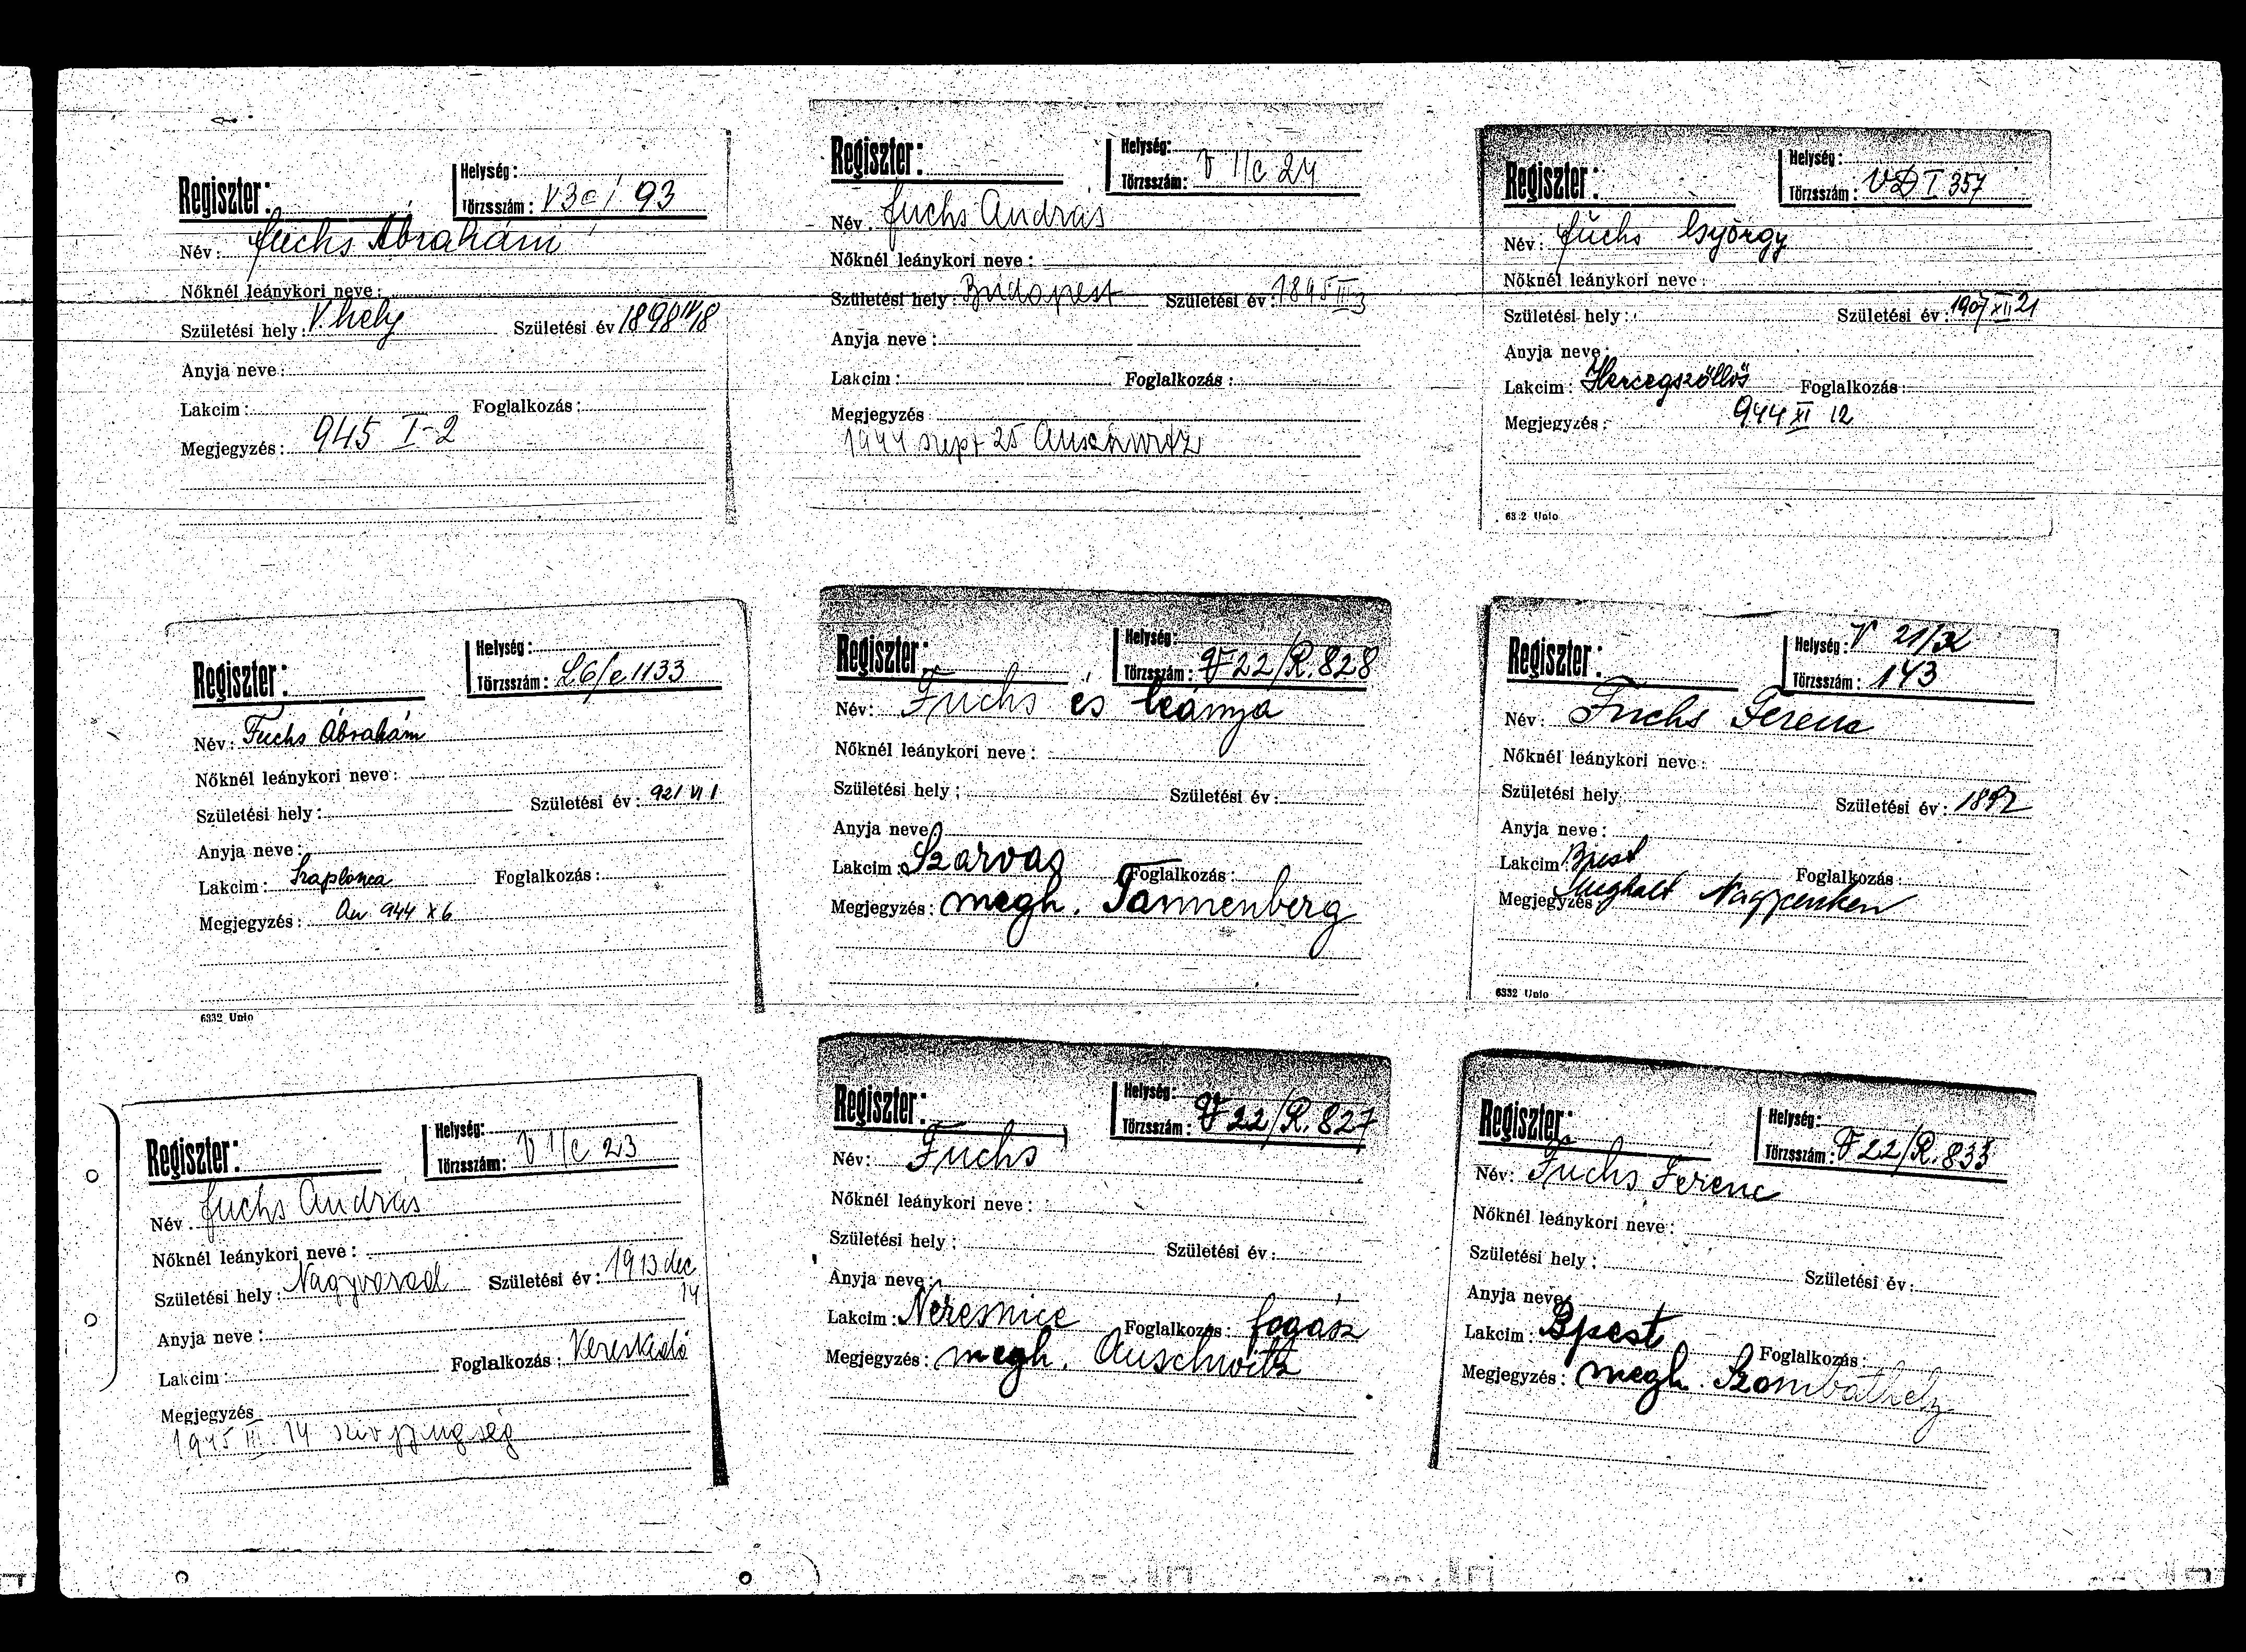 Regiszter:
Helység:
Törzsszám: V3c/ 93
Név: Fuchs Ábrahám
Nőknél leánykori neve:
Születési hely: Vhely Születési év 1898 IV 18
Anyja neve:
Lakcim: Foglalkozás:
Megjegyzés: 945 I-2
Regiszter:
Helység:
Törzsszám: V 1/c 24
Név. Fuchs András
Nőknél leánykori neve:
Születési hely: Budapest Születési év: 1895 III 3
Anyja neve:
Lakcim: Foglalkozás:
Megjegyzés
1944 szept 25 Auschwitz
Regiszter:
Helység:
Törzsszám: VD I 357
Név: Fuchs György
Nőknél leánykori neve:
Születési hely: Születési év: 1907 XII 21
Anyja neve:
Lakcim: Hercegszöllös Foglalkozás:
Megjegyzés: 944 XI 12
Unio
Regiszter:
Helység:
Törzsszám: L6/e 1133
Név: Fuchs Ábrahám
Nőknél leánykori neve:
Születési hely: Születési év: 921 VI 1
Anyja neve:
Lakcim: Szaplonca Foglalkozás:
Megjegyzés: Au 944 X 6
6332 Unio
Regiszter:
Helység:
Törzsszám: F22/R. 828
Név: Fuchs és leánya
Nőknél leánykori neve:
Születési hely: Születési év:
Anyja neve:
Lakcim: Szarvas Foglalkozás:
Megjegyzés: megh. Tannenberg
Regiszter:
Helység: V 21/
Törzsszám: 143
Név: Fuchs Ferenc
Nőknél leánykori neve:
Születési hely Születési év: 1892
Anyja neve:
Lakcim: Bpest Foglalkozás:
Megjegyzés: Meghalt Nagycenken
6332 Unio
Regiszter:
Helység:
Törzsszám: V 1/c 23
Név. Fuchs András
Nőknél leánykori neve:
Születési hely: Nagyvárad Születési év: 1913 dec
14
Anyja neve:
Lakcim: Foglalkozás: Kereskedő
Megjegyzés
1945 III. 14
Regiszter:
Helység:
Törzsszám: F22/R. 827
Név: Fuchs
Nőknél leánykori neve:
Születési hely: Születési év:
Anyja neve:
Lakcim: Neresnice Foglalkozás: fogász
Megjegyzés: megh. Auschwitz
Regiszter:
Helység:
Törzsszám: F22/R. 833
Név: Fuchs Ferenc
Nőknél leánykori neve:
Születési hely: Születési év:
Anyja neve:
Lakcim: Bpest Foglalkozás:
Megjegyzés: megh. Szombathely